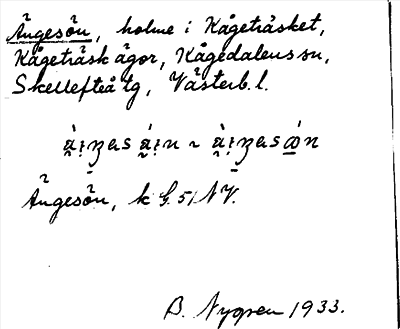 Ängesön, holme i Kågeträsket,
Kågeträsk ägor, Kågedalens sn,
Skellefteå tg, Västerb. l.
Ängesön, k G. 51 NV.
B. Nygren 1933.